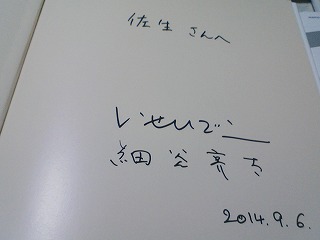 佐生 さんへ
いせひでこ
細谷亮太
2014.9.6.